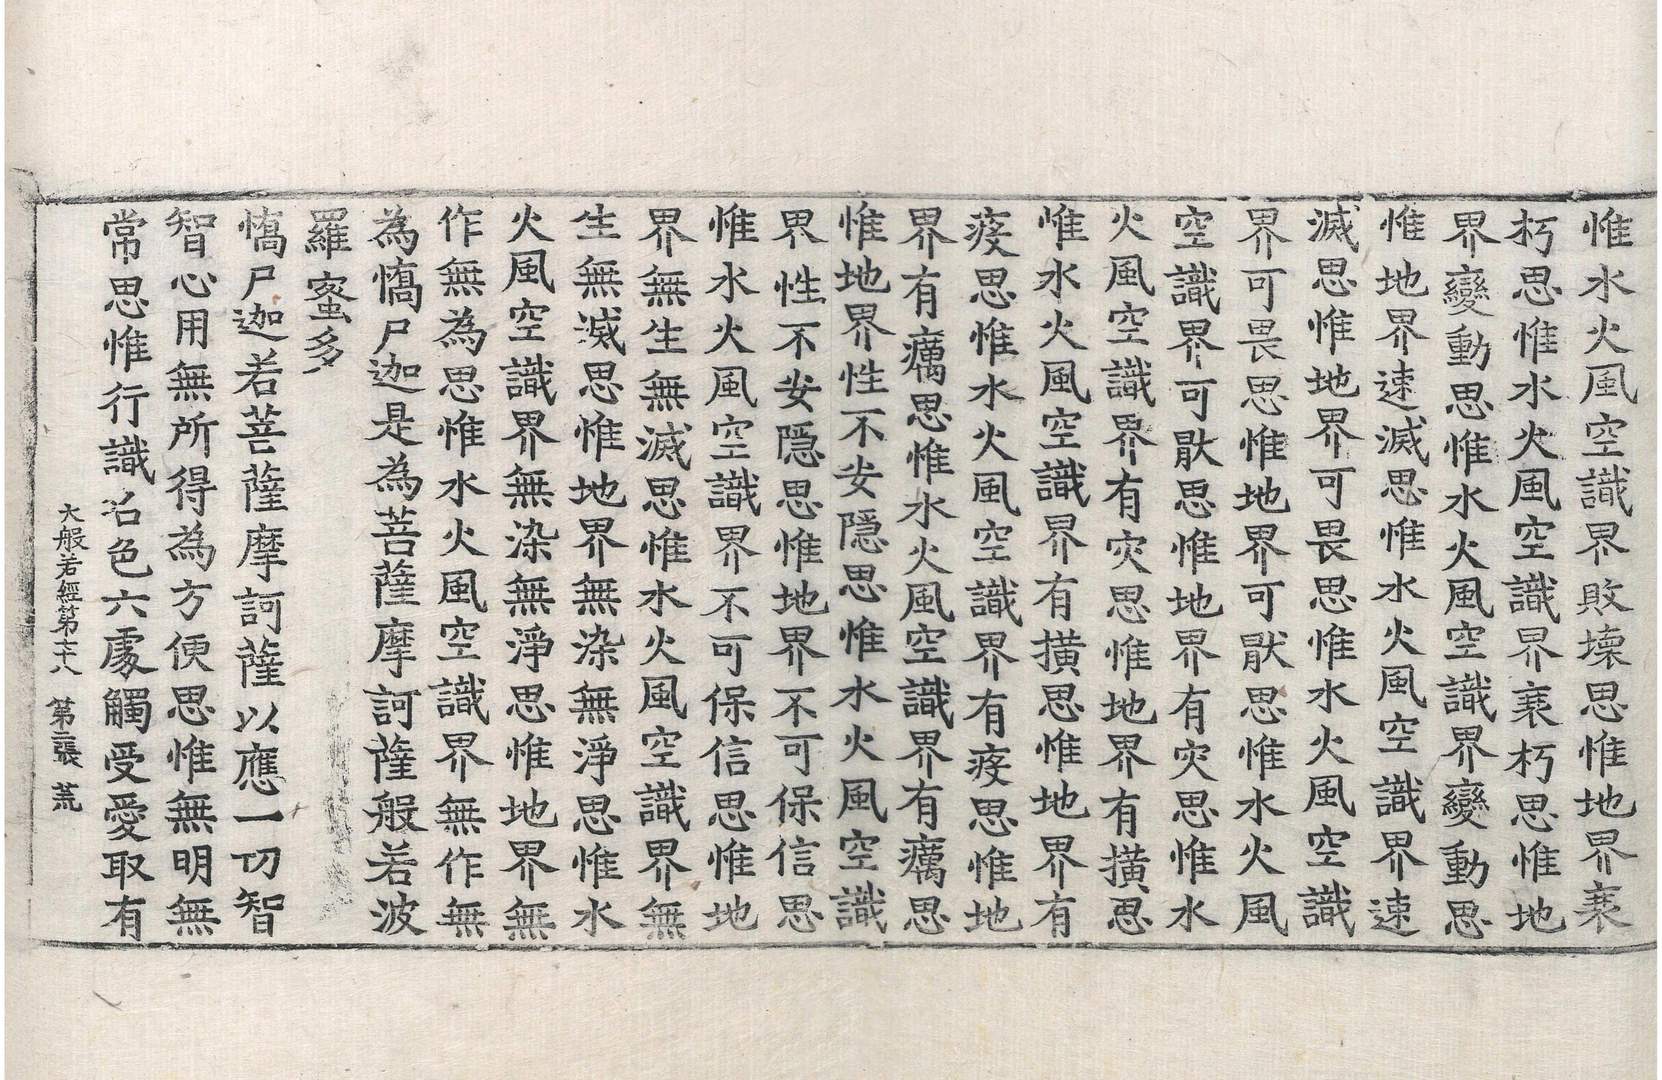 惟水火風空識界敗壞思惟地界衰
朽思惟水火風空識界衰朽思惟地
界變動思惟水火風空識界變動思
惟地界速滅思惟水火風空識界速
滅思惟地界可畏思惟水火風空識
界可畏思惟地界可厭思惟水火風
空識界可厭思惟地界有灾思惟水
火風空識界有灾思惟地界有撗思
惟水火風空識界有撗思惟地界有
疫思惟水火風空識界有疫思惟地
界有癘思惟水火風空識界有癘思
惟地界性不安隱思惟水火風空識
界性不安隱思惟地界不可保信思
惟水火風空識界不可保信思惟地
界無生無滅思惟水火風空識界無
生無滅思惟地界無染無淨思惟水
火風空識界無染無淨思惟地界無
作無為思惟水火風空識界無作無
為憍尸迦是為菩薩摩訶薩般若波
羅蜜多
憍尸迦若菩薩摩訶薩以應一切智
智心用無所得為方便思惟無明無
常思惟行識名色六處觸受愛取有
大般若經第七十八 第二張 荒